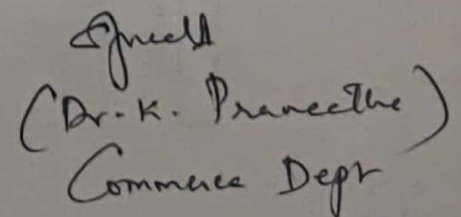 (Dr. K. Praneetha)
Commerce Dept